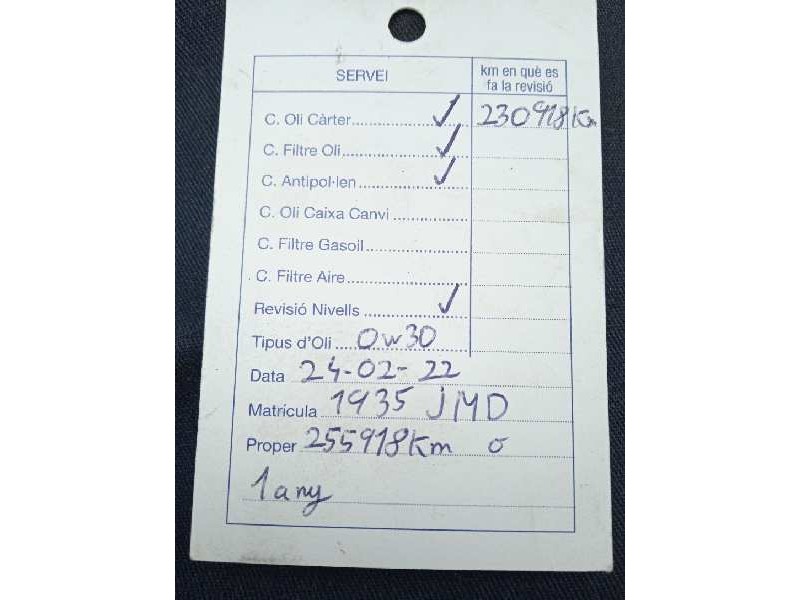 SERVEI km en què es fa la revisió
C. Oli Càrter ✓ 230918 Km
C. Filtre Oli ✓
C. Antipol·len ✓
C. Oli Caixa Canvi
C. Filtre Gasoil
C. Filtre Aire
Revisió Nivells ✓
Tipus d'Oli 0w30
Data 24-02-22
Matrícula 1935 JMD
Proper 255918 Km o
1 any